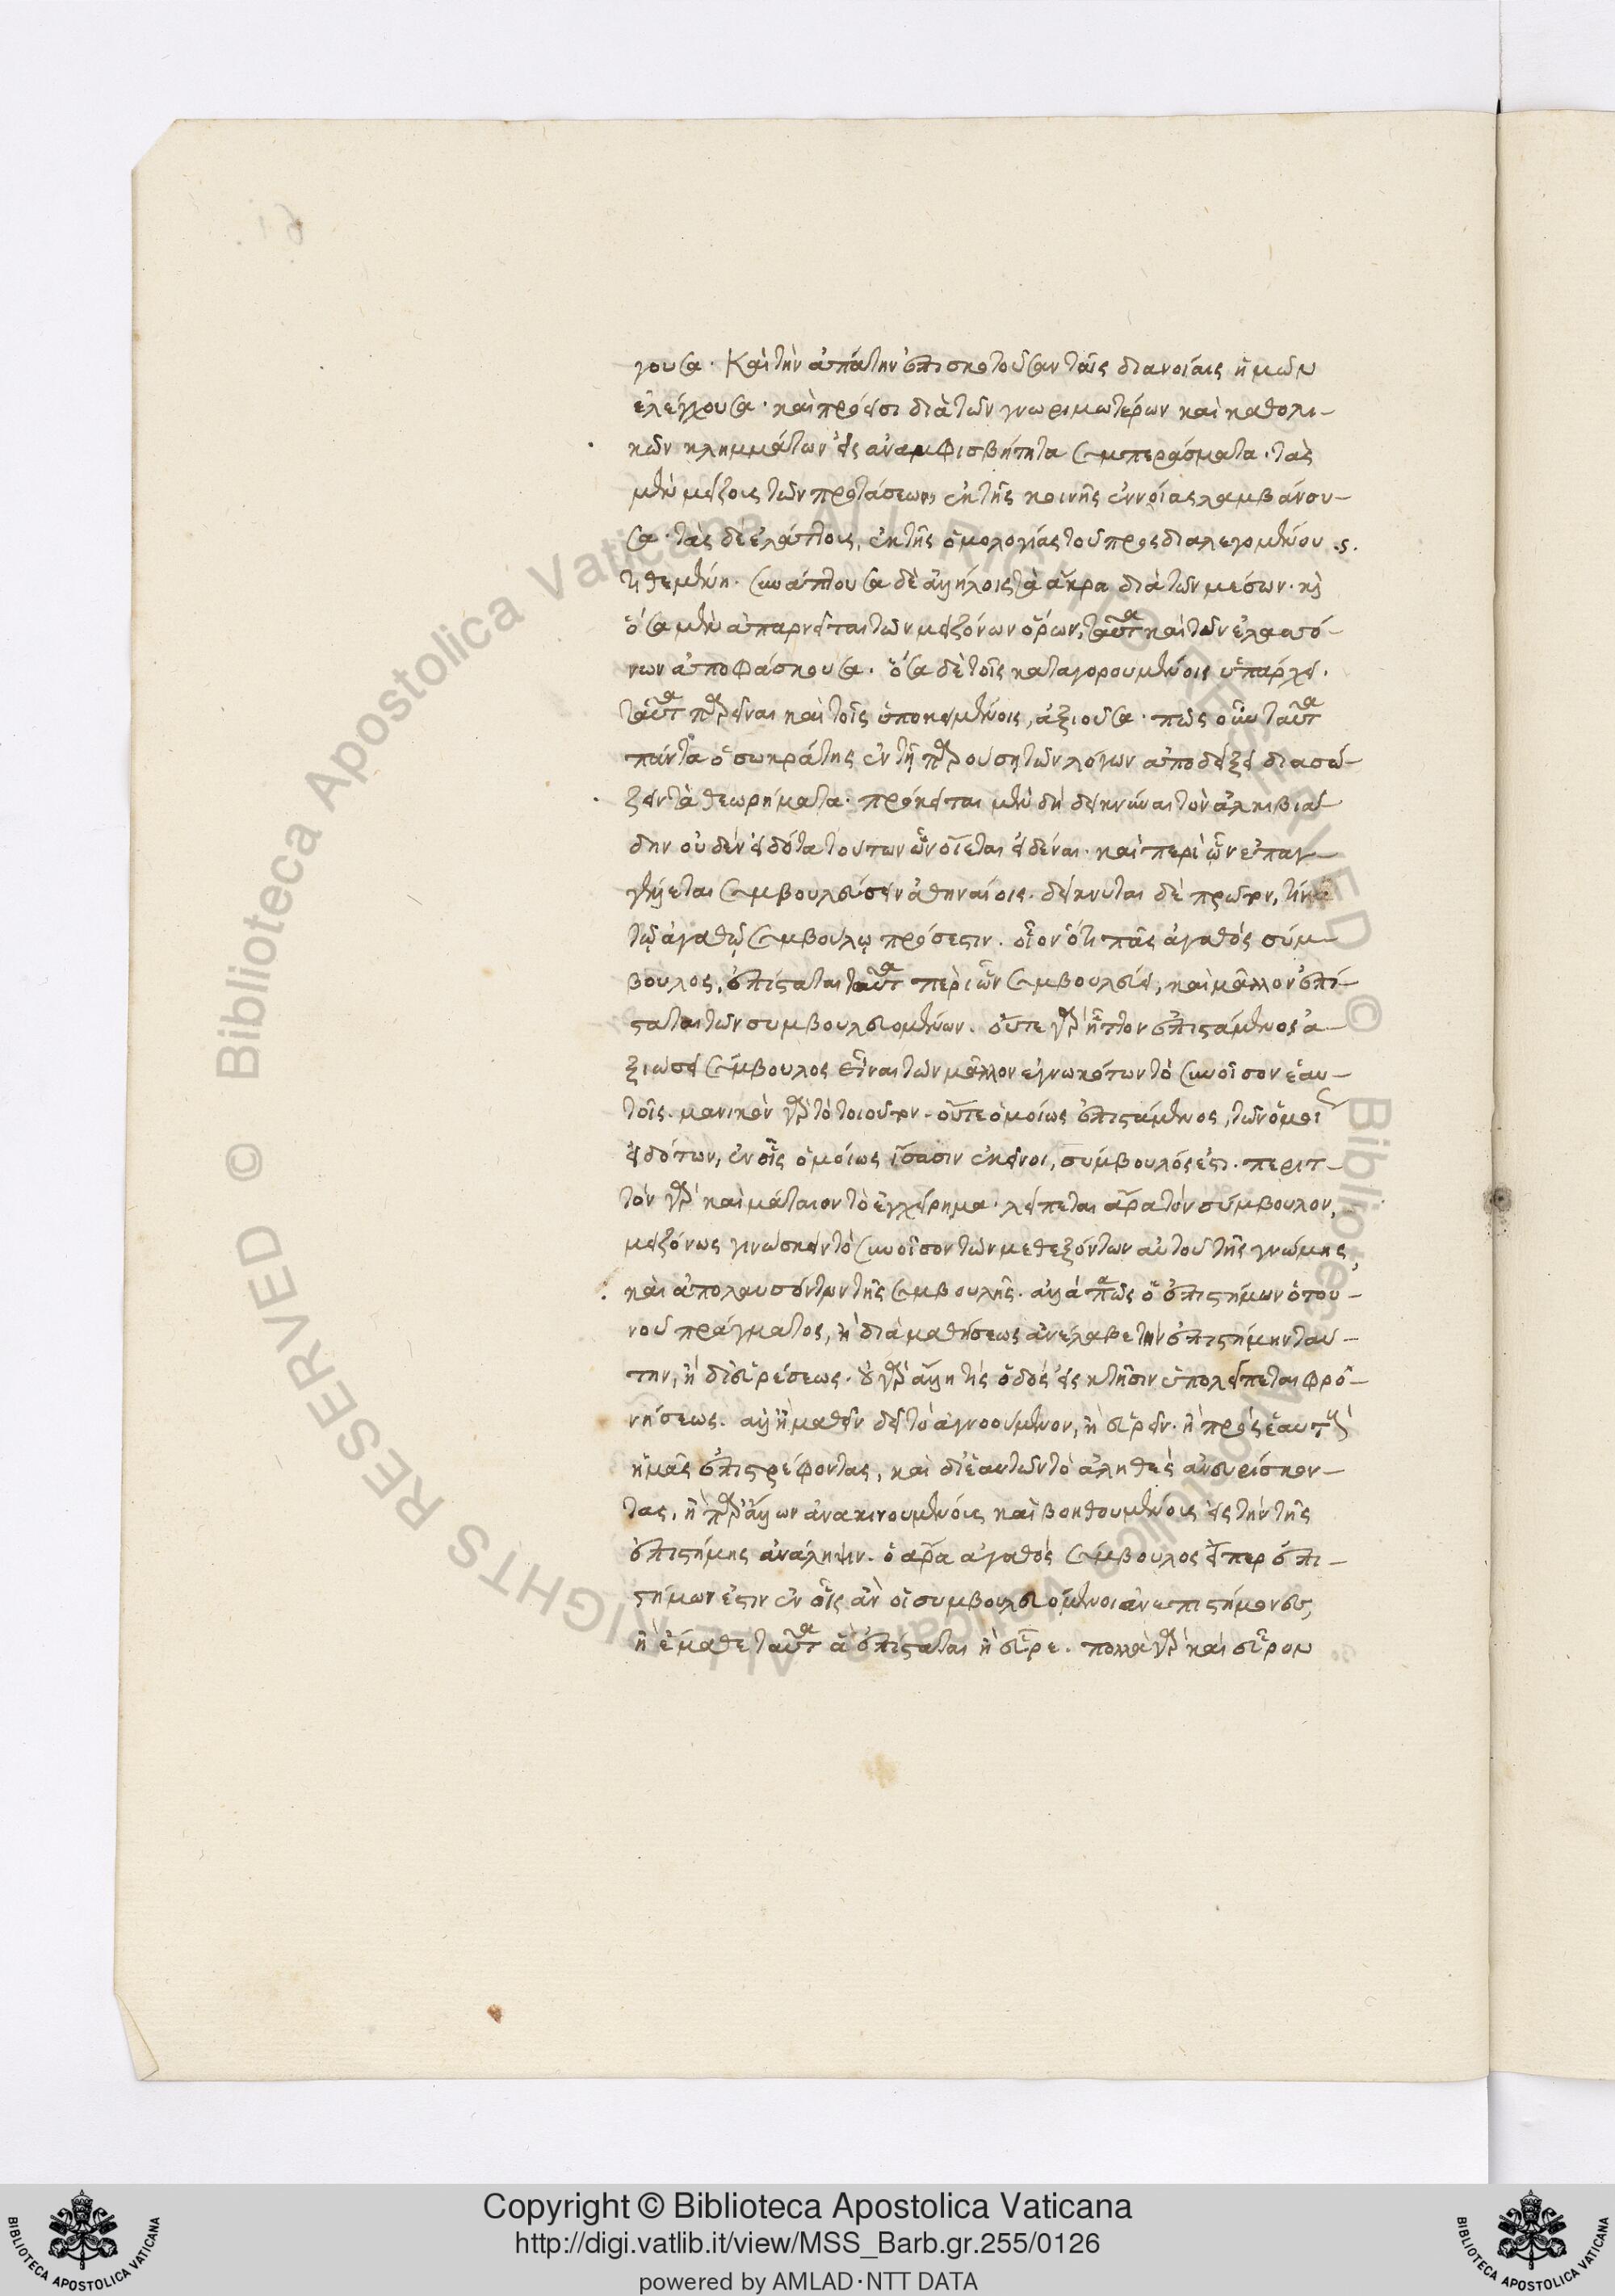 γουσα. Καὶ τὴν ἀπάτην ἐπισκοτοῦσαν ταῖς διανοίαις ἡμῶν
ἐλέγχουσα. καὶ πρόεισι διὰ τῶν γνωριμωτέρων καὶ καθολι-
κῶν κλημμάτων εἰς ἀναμφισβήτητα συμπεράσματα. τὰς
μὲν μείζους τῶν προτάσεων, ἐκ τῆς κοινῆς ἐννοίας λαμβάνου-
σα. τὰς δὲ ἐλάττους, ἐκ τῆς ὁμολογίας τοῦ προσδιαλεγομένου .ς.
τιθεμένη. συνάπτουσα δὲ ἀλλήλοις τὰ ἄκρα διὰ τῶν μέσων. κὶ
ὅσα μὲν ἀπαρνεῖται τῶν μειζόνων ὅρων, ταῦτα καὶ τῶν ἐλασσό-
νων ἀποφάσκουσα. ὅσα δὲ τοῖς καταγορουμένοις ὑπάρχει.
ταῦτα παρεῖναι καὶ τοῖς ὑποκειμένοις, ἀξιοῦσα. πῶς οὖν ταῦτα
πάντα ὁ σωκράτης ἐν τῇ παρούσῃ τῶν λόγων ἀποδείξει διασώ-
ζειν τὰ θεωρήματα. πρόκειται μὲν δὴ δεικνύναι τὸν ἀλκιβιά-
δην οὐδὲν εἰδότα τούτων ὧν οἴεται εἰδέναι. καὶ περὶ ὧν ἐπαγ-
γέλλεται συμβουλεύσειν ἀθηναίοις. δείκνυται δὲ πρῶτον,
τῷ ἀγαθῷ συμβούλῳ πρόσεστιν. οἷον ὅτι πᾶς ἀγαθὸς σύμ-
βουλος, ἐπίσταται ταῦτα περὶ ὧν συμβουλεύει, καὶ μᾶλλον ἐπί-
σταται τῶν συμβουλευομένων. οὔτε γὰρ ἧττον ἐπιστάμενος ἀ-
ξιώσει σύμβουλος εἶναι τῶν μᾶλλον ἐγνωκότων τὸ συνοῖσον ἑαυ-
τοῖς. μανικὸν γὰρ τὸ τοιοῦτον. οὔτε ὁμοίως ἐπιστάμενος, τῶν ὁμοί
εἰδότων, ἐν οἷς ὁμοίως ἴσασιν ἐκεῖνοι, σύμβουλός ἐστι. περιτ-
τὸν γὰρ καὶ μάταιον τὸ ἐγχείρημα. λείπεται ἄρα τὸν σύμβουλον,
μειζόνως γινώσκειν τὸ συνοῖσον τῶν μεθεξόντων αὐτοῦ τῆς γνώμης,
καὶ ἀπολαυσόντων τῆς συμβουλῆς. ἀλλὰ πᾶς ὁ ἐπιστήμων ὁτου-
νοῦ πράγματος, ἢ διὰ μαθήσεως ἀνέλαβε τὴν ἐπιστήμην ταύ-
την, ἢ δι᾽ εὑρέσεως. οὐ γὰρ ἄλλη τὶς ὁδὸς εἰς κτῆσιν ὑπολείπεται φρο-
νήσεως. ἀλλ᾽ ἢ μαθεῖν δεῖ τὸ ἀγνοούμενον, ἢ εὑρεῖν. ἢ πρὸς ἑαυτοὺς
ἡμᾶς ἐπιστρέφοντας, καὶ δι᾽ ἑαυτῶν τὸ ἀληθὲς ἀνευρίσκον-
τας, ἢ παρ᾽ ἄλλων ἀνακινουμένοις καὶ βοηθουμένοις εἰς τὴν τῆς
ἐπιστήμης ἀνάληψιν. ὁ ἄρα ἀγαθὸς σύμβουλος εἴπερ ἐπι-
στήμων ἐστιν ἐν οἷς ἂν οἱ συμβουλευόμενοι ἀνεπιστήμονες,
ἢ ἔμαθε ταῦτα ἃ ἐπίσταται ἢ εὗρε. πολλὰ γὰρ καὶ εὗρον
Copyright © Biblioteca Apostolica Vaticana
http://digi.vatlib.it/view/MSS_Barb.gr.255/0126
powered by AMLAD·NTT DATA
BIBLIOTECA APOSTOLICA VATICANA
BIBLIOTECA APOSTOLICA VATICANA
Biblioteca Apostolica Vaticana ALL RIGHTS RESERVED ©